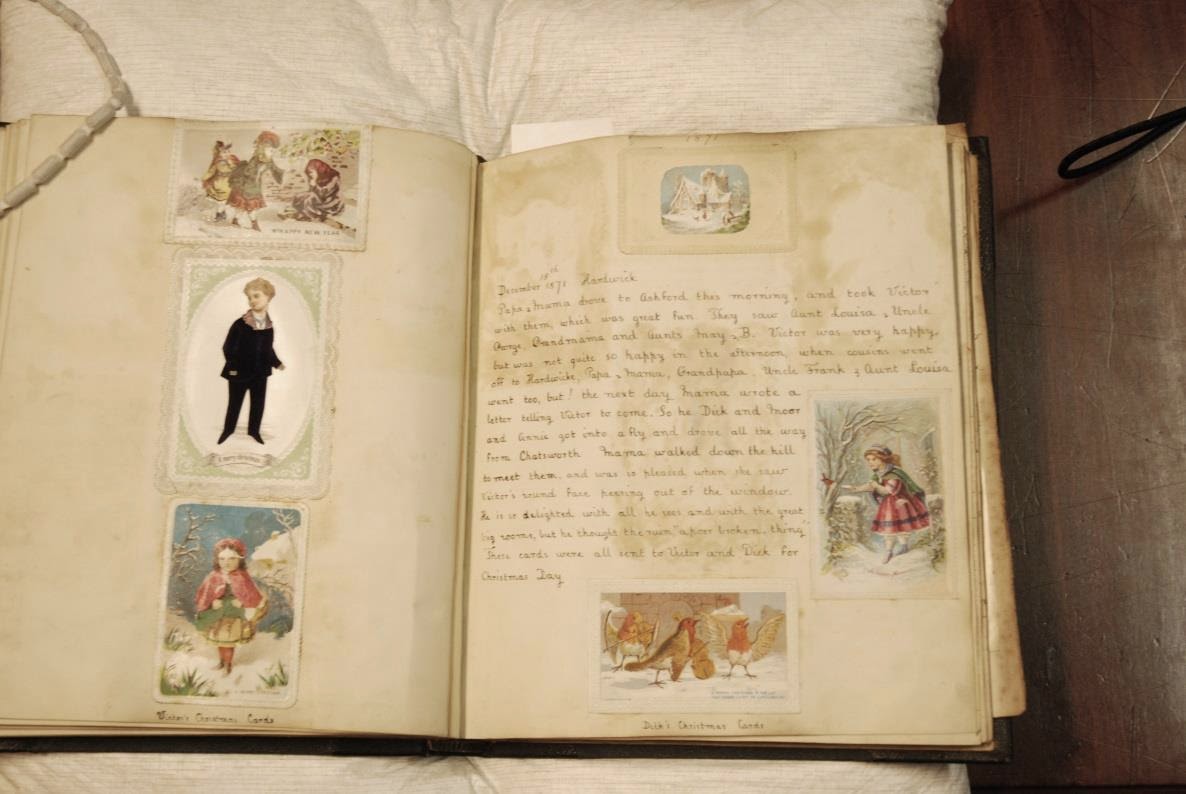 A HAPPY NEW YEAR
A merry christmas
Victor's Christmas Cards
1871
December 18th 1871 Hardwick
Papa & Mama drove to Ashford this morning, and took Victor
with them, which was great fun. They saw Aunt Louisa, Uncle
George, Grandmama and Aunts May & B. Victor was very happy,
but was not quite so happy in the afternoon, when cousins went
off to Hardwicke, Papa & Mama, Grandpapa, Uncle Frank & Aunt Louisa
went too, but! the next day Mama wrote a
letter telling Victor to come. So he Dick and Moor
and Annie got into a fly and drove all the way
from Chatsworth Mama walked down the hill
to meet them, and was so pleased when she saw
Victor's round face peering out of the window.
He is so delighted with all he sees and with the great
big rooms, but he thought the ruin, "a poor broken, thing"
These cards were all sent to Victor and Dick for
Christmas Day
Dick's Christmas Cards